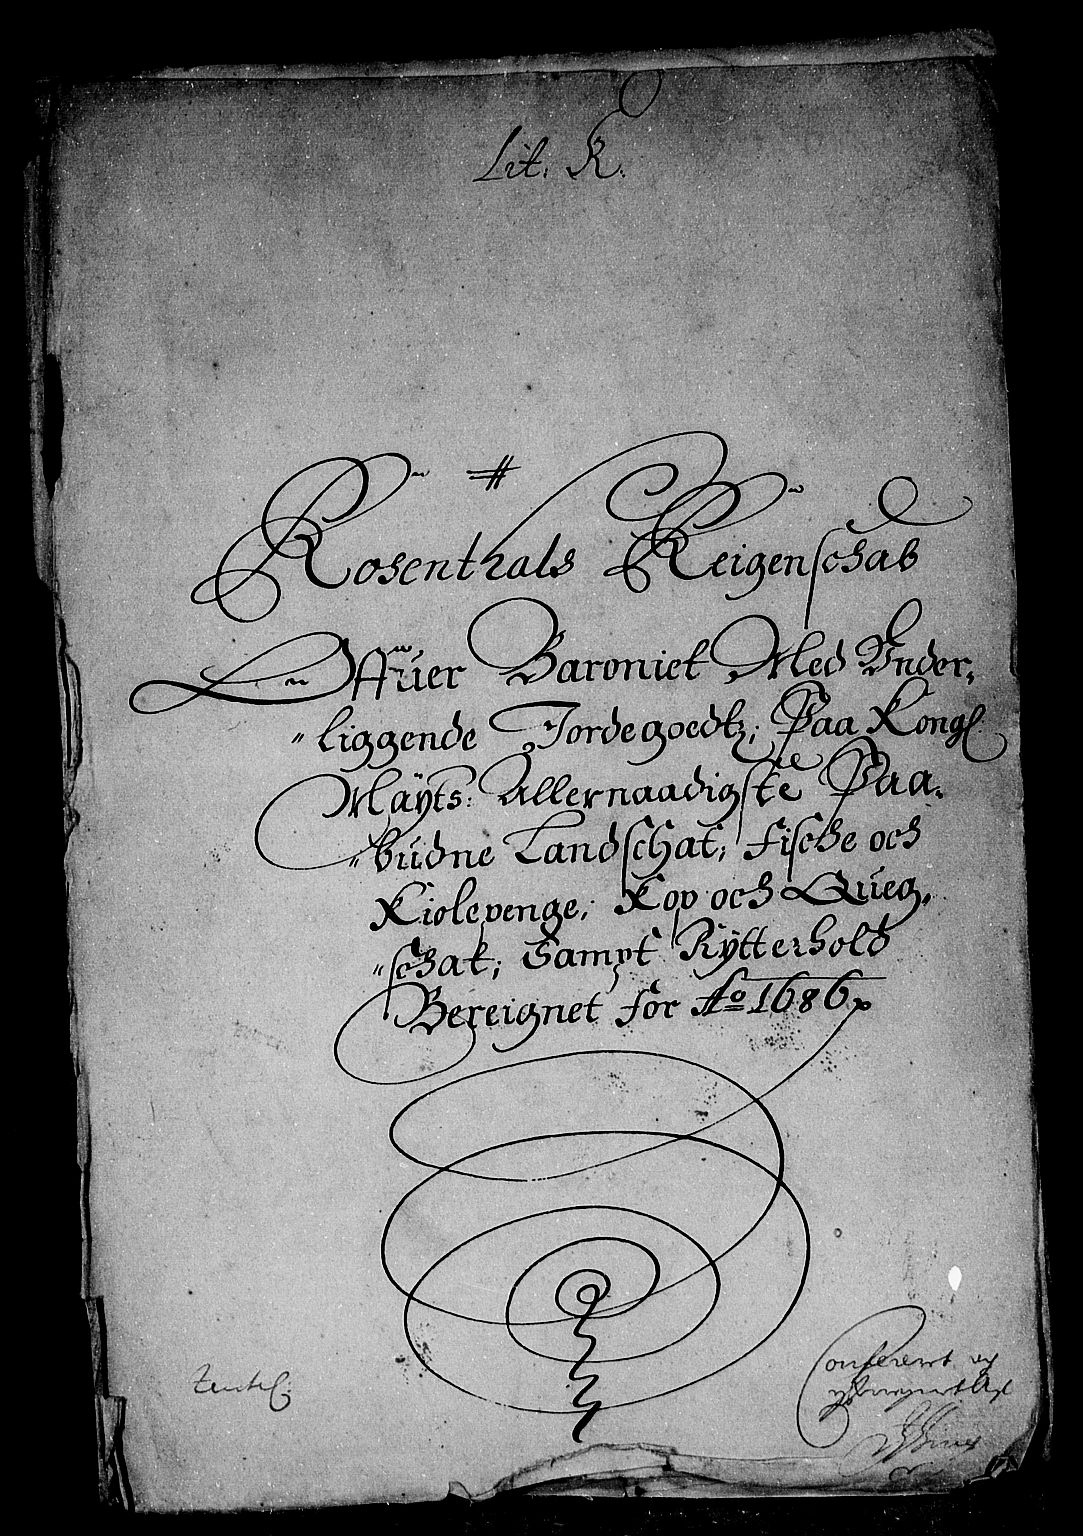 Lit. K.
Rosenthals Reigenschab
Offuer Baroniet Med Under-
"liggende Jordegoedtz; Paa Kongl.
Maÿts: Allernaadigste Paa-
"budne Landschat; Fische och
Kiolepenge; Kop och Queg-
"schat; Sampt Rÿtterhold
Bereignet for Ao 1686
Conferert og